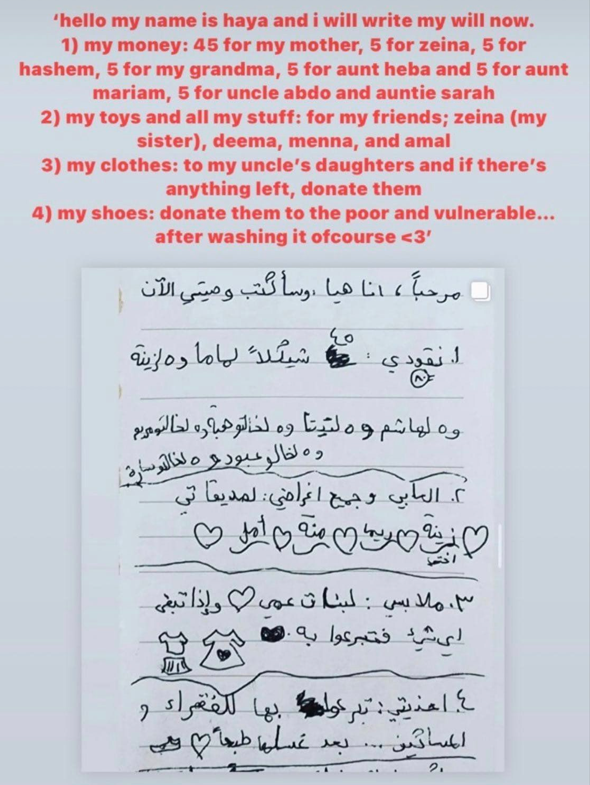 ‘hello my name is haya and i will write my will now.
1) my money: 45 for my mother, 5 for zeina, 5 for
hashem, 5 for my grandma, 5 for aunt heba and 5 for aunt
mariam, 5 for uncle abdo and auntie sarah
2) my toys and all my stuff: for my friends; zeina (my
sister), deema, menna, and amal
3) my clothes: to my uncle’s daughters and if there’s
anything left, donate them
4) my shoes: donate them to the poor and vulnerable...
after washing it ofcourse <3’
مرحباً، انا هيا، وسأكتب وصيتي الآن
٤٥
١. نقودي: شيكلاً لماما و ٥ لزينة
٨٠
و ٥ لهاشم و ٥ لتيتا و ٥ لخالتو هبة و ٥ لخالتو مريم
و ٥ لخالو عبود و ٥ لخالتو سارة
٢. العابي و جمع اغراضي: لصديقاتي
زينة ريما منة أمل
اختي
٣. ملابسي: لبنات عمي وإذا تبقى
اي شيء فتبرعوا به.
٤. احذيتي: تبرعوا بها للفقراء و
المساكين ... بعد غسلها طبعاً